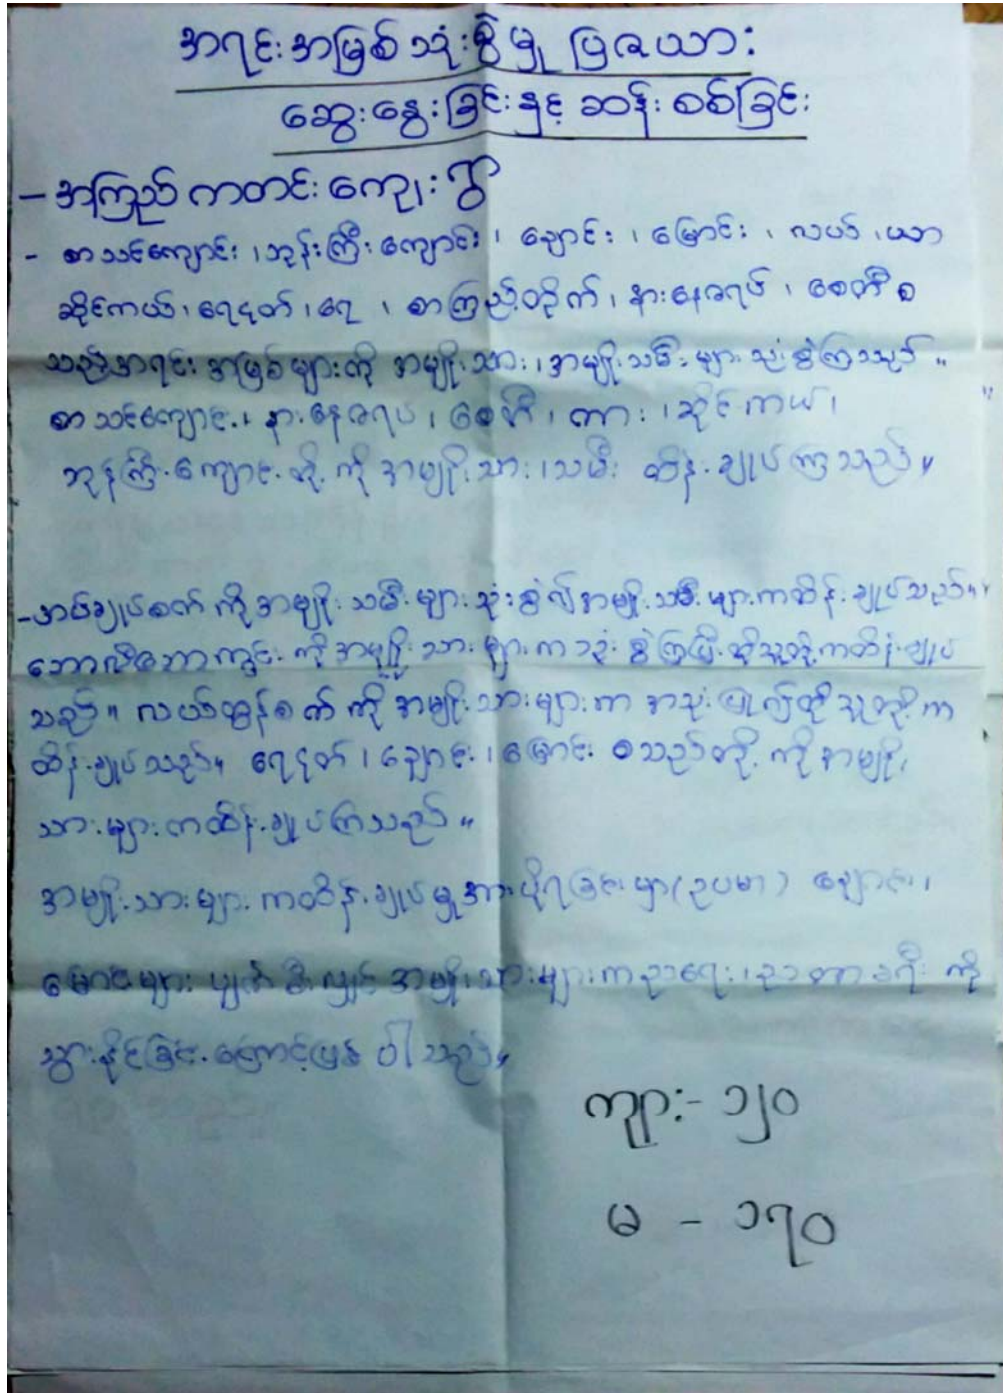 အရင်းအမြစ်သုံးစွဲမှု ပြဇယား
ဆွေးနွေးခြင်းနှင့် ဆန်းစစ်ခြင်း
- အကြည် ကတင်း ကျေးရွာ
- စာသင်ကျောင်း ၊ ဘုန်းကြီးကျောင်း ၊ ချောင်း ၊ မြောင်း ၊ လယ် ၊ ယာ
ဆိုင်ကယ် ၊ ရေဒုတ် ၊ ရေ ၊ စာကြည့်တိုက် ၊ နားနေဇရပ် ၊ စေတီ စ
သည့်အရင်းအမြစ်များကို အမျိုးသား ၊ အမျိုးသမီးများ သုံးစွဲကြသည်။
စာသင်ကျောင်း ၊ နားနေဇရပ် ၊ စေတီ ၊ ကား ၊ ဆိုင်ကယ် ၊
ဘုန်ကြီးကျောင်းတို့ကို အမျိုးသား ၊ သမီး ထိန်းချုပ်ကြသည်။
- အပ်ချုပ်စက်ကို အမျိုးသမီးများသုံးစွဲ၍ အမျိုးသမီးများကထိန်းချုပ်သည်။
ဘောလီဘောကွင်းကို အမျိုးသားများကသုံးစွဲကြပြီး ထိုသူတို့ကထိန်းချုပ်
သည်။ လယ်ထွန်စက်ကို အမျိုးသားများက အသုံးပြု၍ထိုသူတို့က
ထိန်းချုပ်သည်။ ရေဒုတ် ၊ ချောင်း ၊ မြောင်း စသည်တို့ကို အမျိုး
သားများကထိန်းချုပ်ကြသည်။
အမျိုးသားများကထိန်းချုပ်မှုအားပိုရခြင်းမှာ (ဥပမာ) ချောင်း ၊
မြောင်းများ ပျက်စီးလျှင် အမျိုးသားများက ခရီးကို
သွားနိုင်ခြင်းကြောင့်ဖြစ်ပါသည်။
ကျား - ၁၂၀
မ - ၁၇၀